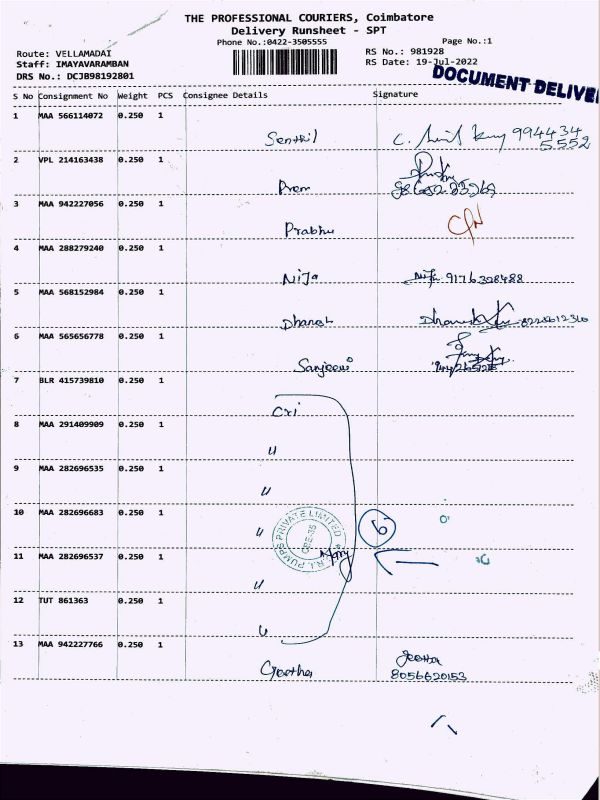 THE PROFESSIONAL COURIERS, Coimbatore
Delivery Runsheet - SPT
Phone No.:0422-3505555
Page No.:1
Route: VELLAMADAI
Staff: IMAYAVARAMBAN
DRS No.: DCJB98192801
RS No.: 981928
RS Date: 19-Jul-2022
DOCUMENT DELIVE
S No Consignment No Weight PCS Consignee Details Signature
1 MAA 566114072 0.250 1
Senthil 994434
5552
2 VPL 214163438 0.250 1
Prem
3 MAA 942227056 0.250 1
Prabhu
4 MAA 288279240 0.250 1
Nija Nija 9176328488
5 MAA 568152984 0.250 1
Dharah
6 MAA 565656778 0.250 1
Sanjeevi
7 BLR 415739810 0.250 1
Cri
8 MAA 291409909 0.250 1
"
9 MAA 282696535 0.250 1
"
10 MAA 282696683 0.250 1
" 6
R.I. PUMPS PRIVATE LIMITED
CBE-35
11 MAA 282696537 0.250 1
"
12 TUT 861363 0.250 1
"
13 MAA 942227766 0.250 1
Geetha Geetha
8056620153